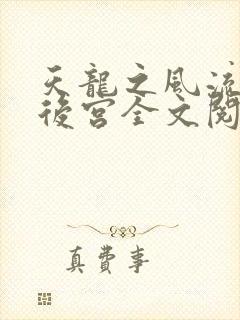 天龍之風流
後宮全文閱
真費事